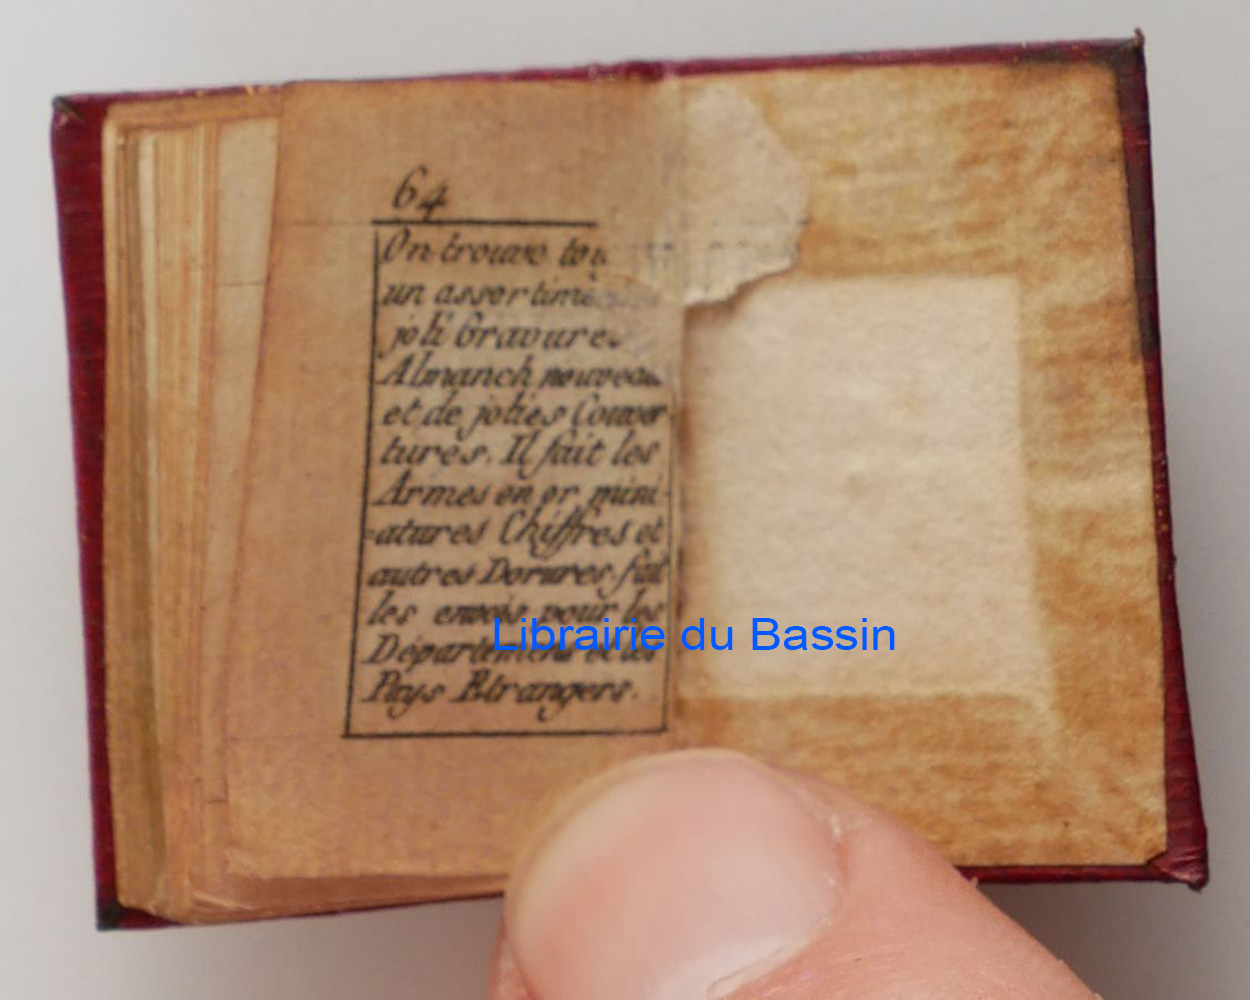 64
On trouve tou
un assortime
joli Gravures
Almanch nouveau
et de jolies Couver
tures. Il fait les
Armes en or mini
=atures Chiffres et
autres Dorures. fait
les envois pour les
Départemens et les
Pays Etrangers.
Librairie du Bassin